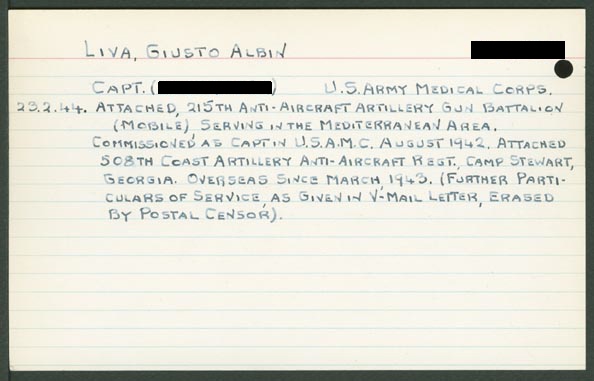 LIVA, GIUSTO ALBIN
CAPT. ( ) U.S. ARMY MEDICAL CORPS.
23.2.44. ATTACHED, 215TH ANTI-AIRCRAFT ARTILLERY GUN BATTALION
(MOBILE), SERVING IN THE MEDITERRANEAN AREA.
COMMISSIONED AS CAPT IN U.S.A.M.C. AUGUST 1942. ATTACHED
508TH COAST ARTILLERY ANTI-AIRCRAFT REGT., CAMP STEWART,
GEORGIA. OVERSEAS SINCE MARCH, 1943. (FURTHER PARTI-
CULARS OF SERVICE, AS GIVEN IN V-MAIL LETTER, ERASED
BY POSTAL CENSOR).